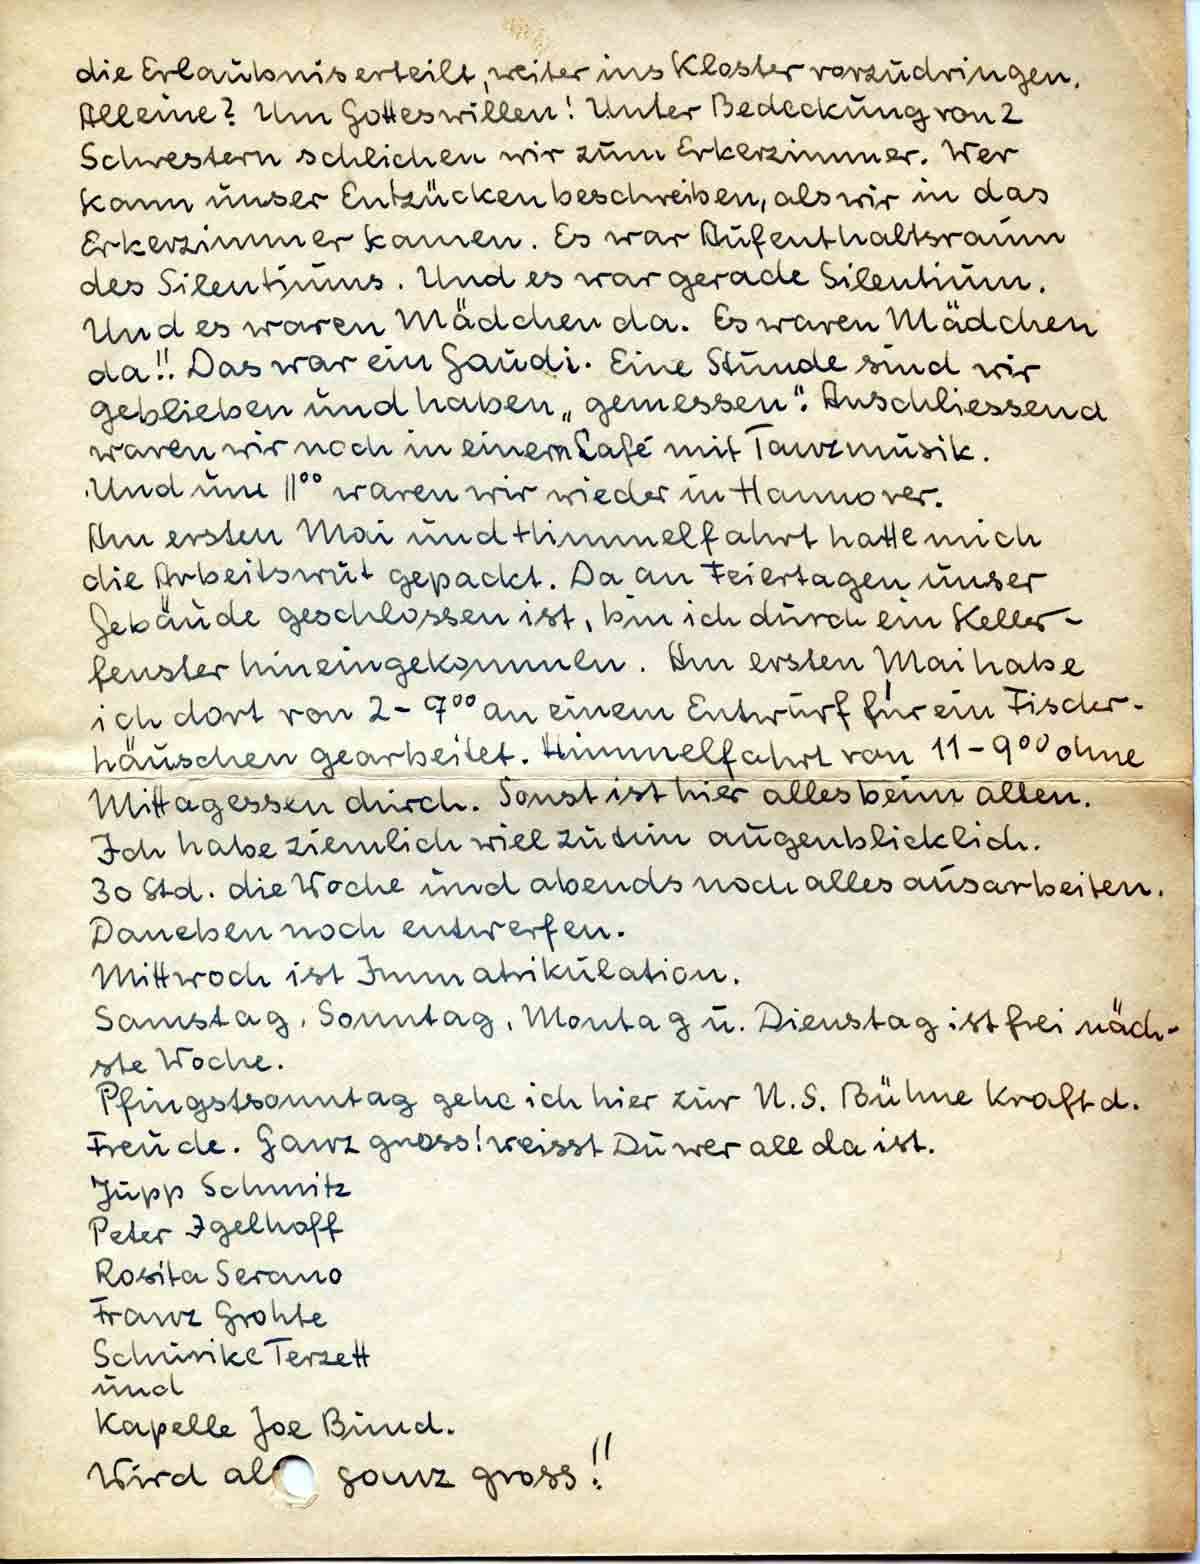 die Erlaubnis erteilt, weiter ins Kloster vorzudringen.
Alleine? Um Gotteswillen! Unter Bedeckung von 2
Schwestern schlichen wir zum Erkerzimmer. Wer
kann unser Entzücken beschreiben, als wir in das
Erkerzimmer kamen. Es war Aufenthaltsraum
des Silentiums. Und es war gerade Silentium.
Und es waren Mädchen da. Es waren Mädchen
da!! Das war ein Gaudi. Eine Stunde sind wir
geblieben und haben „gemessen". Anschliessend
waren wir noch in einem Café mit Tanzmusik.
Und um 11⁰⁰ waren wir wieder in Hannover.
Am ersten Mai und Himmelfahrt hatte mich
die Arbeitswut gepackt. Da an Feiertagen unser
Gebäude geschlossen ist, bin ich durch ein Keller-
fenster hineingekommen. Am ersten Mai habe
ich dort von 2-9⁰⁰ an einem Entwurf für ein Fischer-
häuschen gearbeitet. Himmelfahrt von 11-9⁰⁰ ohne
Mittagessen durch. Sonst ist hier alles beim alten.
Ich habe ziemlich viel zu tun augenblicklich.
30 Std. die Woche und abends noch alles ausarbeiten.
Daneben noch entwerfen.
Mittwoch ist Immatrikulation.
Samstag, Sonntag, Montag u. Dienstag ist frei näch-
ste Woche.
Pfingstsonntag gehe ich hier zur N.S. Bühne Kraft d.
Freude. Ganz gross! weisst Du wer all da ist.
Jupp Schmitz
Peter Igelhoff
Rosita Serano
Franz Grohte
Schurike Terzett
und
Kapelle Joe Bund.
Wird als ganz gross!!